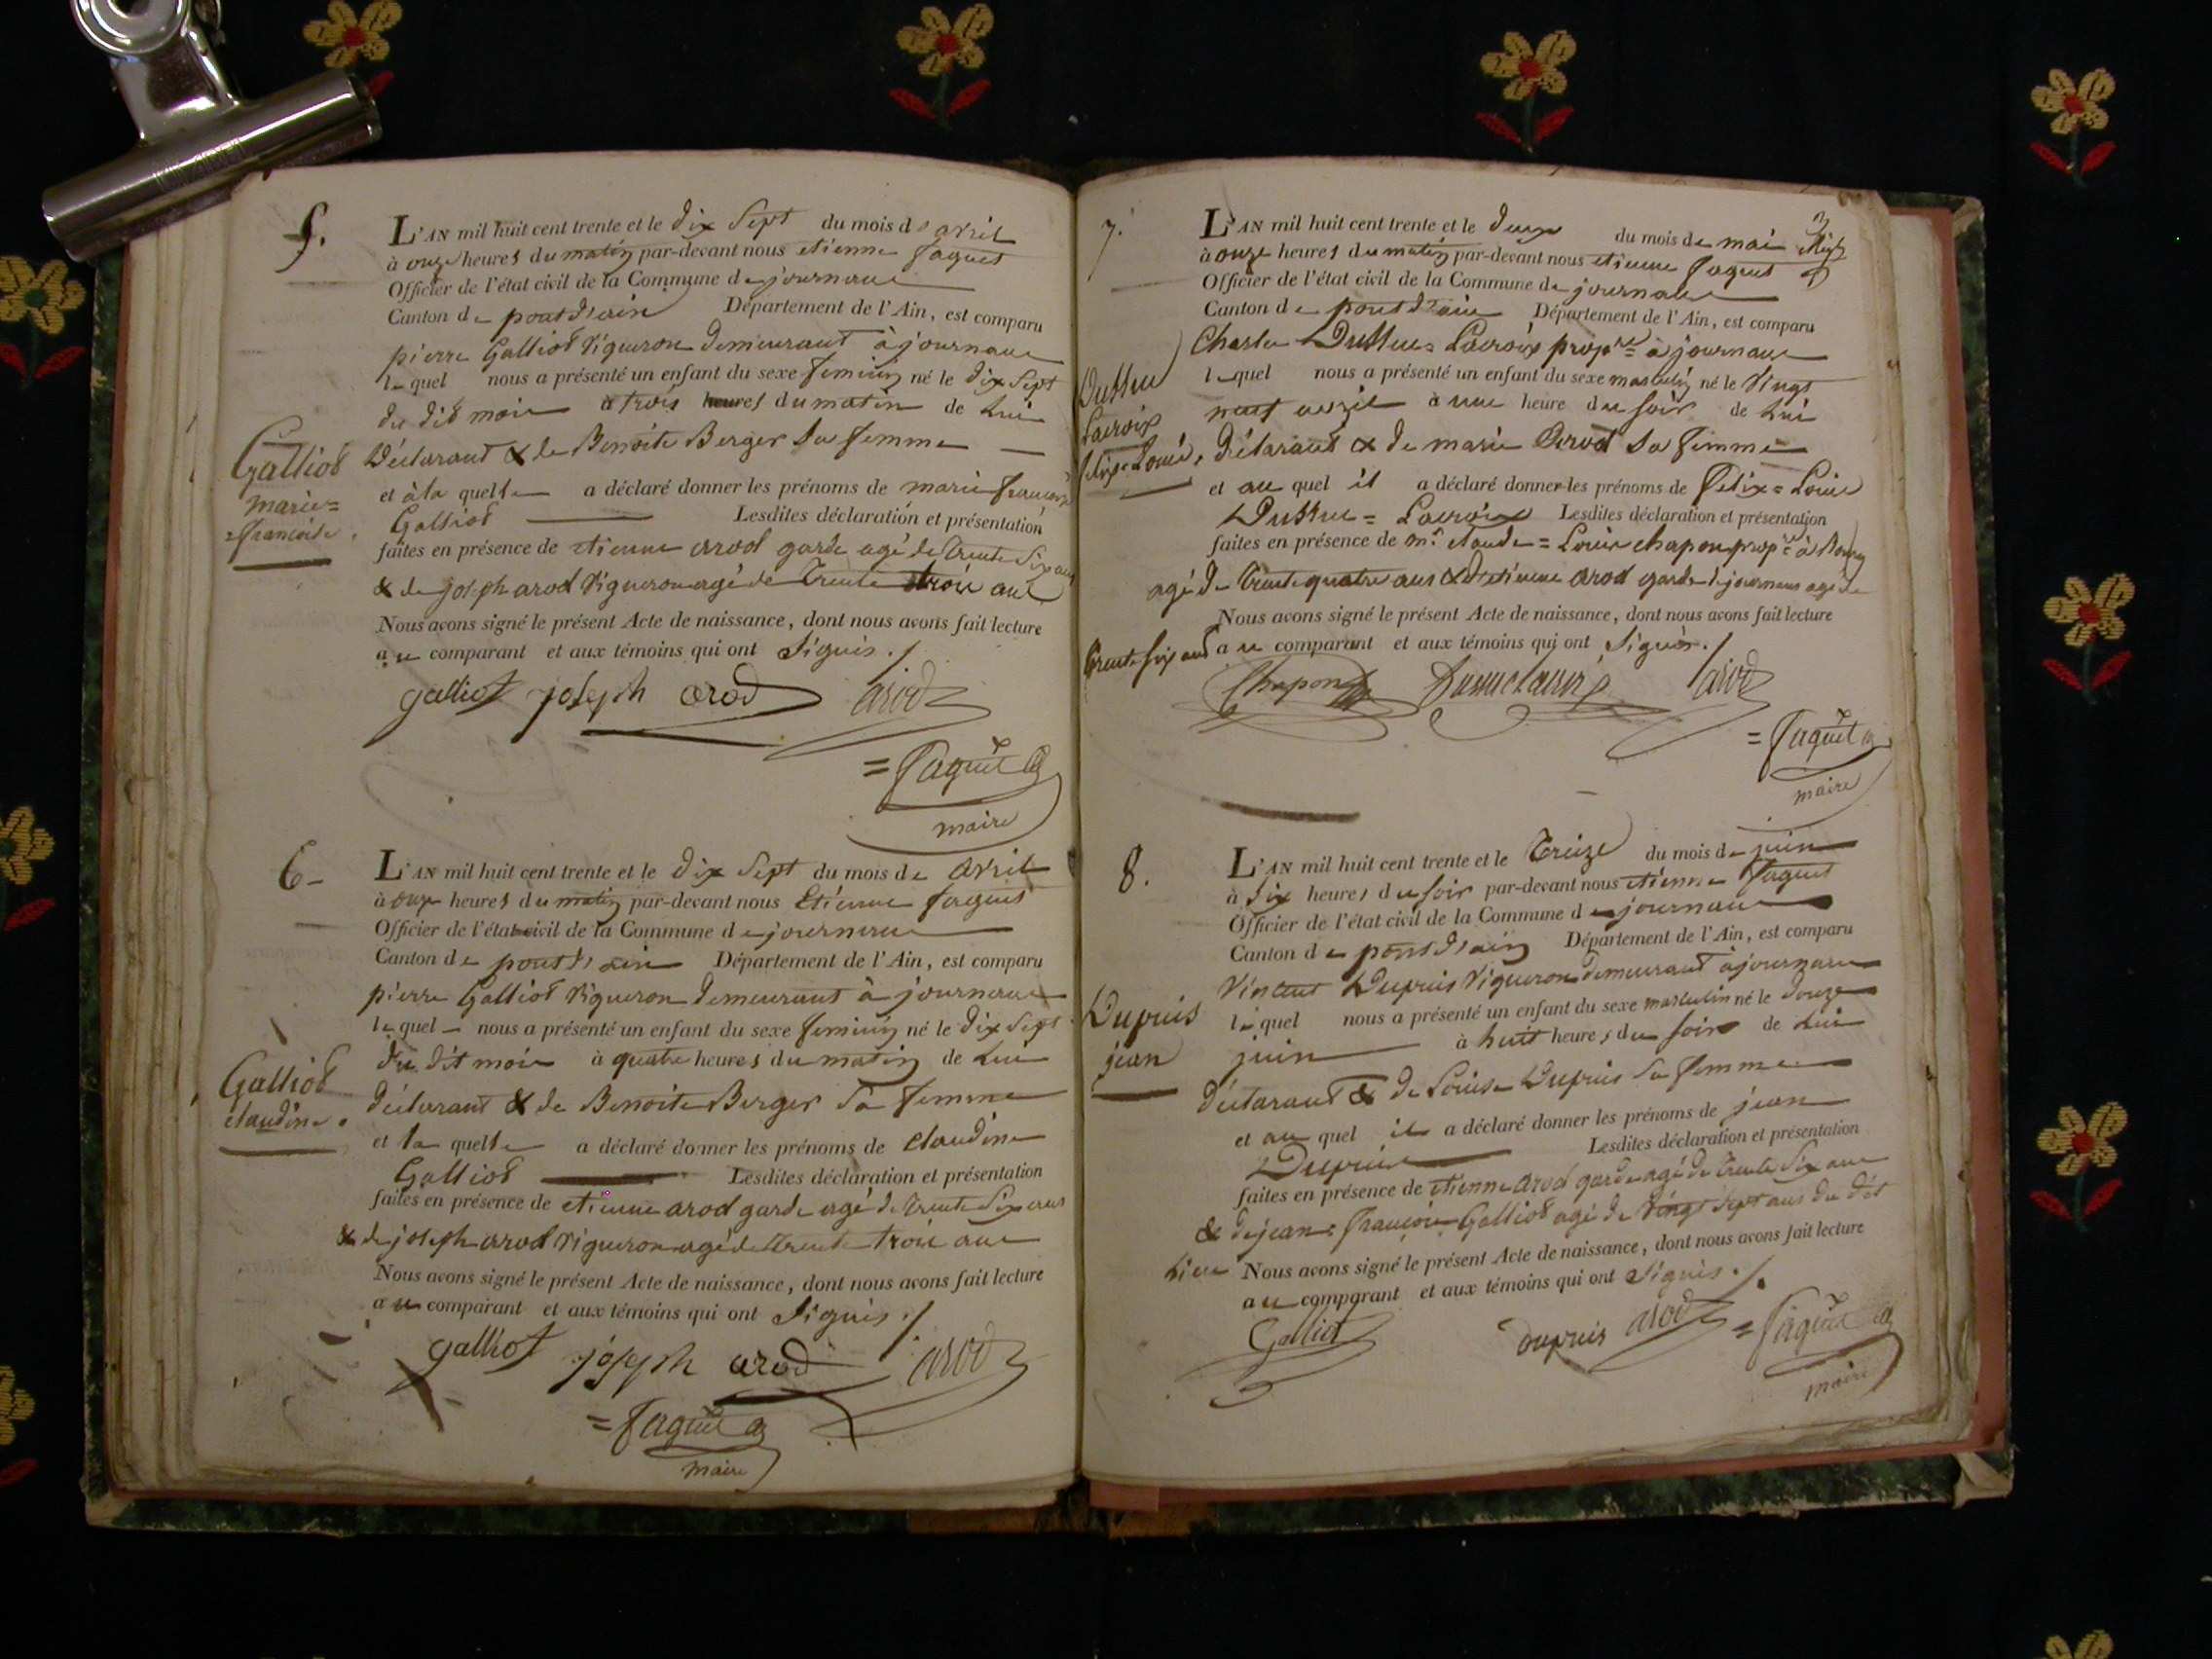 5.
L'AN mil huit cent trente et le dix sept du mois d'avril
à onze heures du matin par-devant nous etienne
Officier de l'état civil de la Commune de journans
Canton de pont d'ain Département de l'Ain, est comparu
pierre Galliot vigneron demeurant à journans
lequel nous a présenté un enfant du sexe feminin né le dix sept
du dit mois à trois heures du matin de lui
Galliot
marie=
=francoise.
déclarant & de Benoite Berger sa femme
et à la quelle a déclaré donner les prénoms de marie francoise
Galliot Lesdites déclaration et présentation
faites en présence de etienne arod garde agé de trente six ans
& de joseph arod vigneron agé de trente trois ans
Nous avons signé le présent Acte de naissance, dont nous avons fait lecture
au comparant et aux témoins qui ont signés ./
galliot joseph arod arod
maire
6
L'AN mil huit cent trente et le dix sept du mois de avril
à onze heures du matin par-devant nous Etienne
Officier de l'état civil de la Commune de journans
Canton de pont d'ain Département de l'Ain, est comparu
pierre Galliot vigneron demeurant à journans
lequel nous a présenté un enfant du sexe feminin né le dix sept
du dit mois à quatre heures du matin de lui
Galliot
claudine.
déclarant & de Benoite Berger sa femme
et la quelle a déclaré donner les prénoms de claudine
Galliot Lesdites déclaration et présentation
faites en présence de etienne arod garde agé de trente six ans
& de joseph arod vigneron agé de trente trois ans
Nous avons signé le présent Acte de naissance, dont nous avons fait lecture
au comparant et aux témoins qui ont signés ./
galliot joseph arod arod
maire
7.
L'AN mil huit cent trente et le deux du mois de mai
à onze heures du matin par-devant nous etienne
Officier de l'état civil de la Commune de journans
Canton de pont d'ain Département de l'Ain, est comparu
Charles Lacroix propre à journans
lequel nous a présenté un enfant du sexe masculin né le vingt
neuf avril à une heure du soir de lui
Lacroix
felix=Louis,
déclarant & de marie arod sa femme
et au quel il a déclaré donner les prénoms de Felix=Louis
Lacroix Lesdites déclaration et présentation
faites en présence de mr. claude=Louis chapon propre à
agé de trente quatre ans & d'etienne arod garde de journans agé de
Nous avons signé le présent Acte de naissance, dont nous avons fait lecture
trente six ans au comparant et aux témoins qui ont signés ./
Chapon arod
maire
8.
L'AN mil huit cent trente et le treize du mois de juin
à six heures du soir par-devant nous etienne
Officier de l'état civil de la Commune de journans
Canton de pont d'ain Département de l'Ain, est comparu
vincent Dupuis vigneron demeurant à journans
lequel nous a présenté un enfant du sexe masculin né le douze
juin à huit heures du soir de lui
Dupuis
jean
déclarant & de Louise Dupuis sa femme
et au quel il a déclaré donner les prénoms de jean
Dupuis Lesdites déclaration et présentation
faites en présence de etienne arod garde agé de trente six ans
& de jean=françois Galliot agé de vingt sept ans du dit
lieu Nous avons signé le présent Acte de naissance, dont nous avons fait lecture
au comparant et aux témoins qui ont signés ./
Galliot Dupuis arod
maire